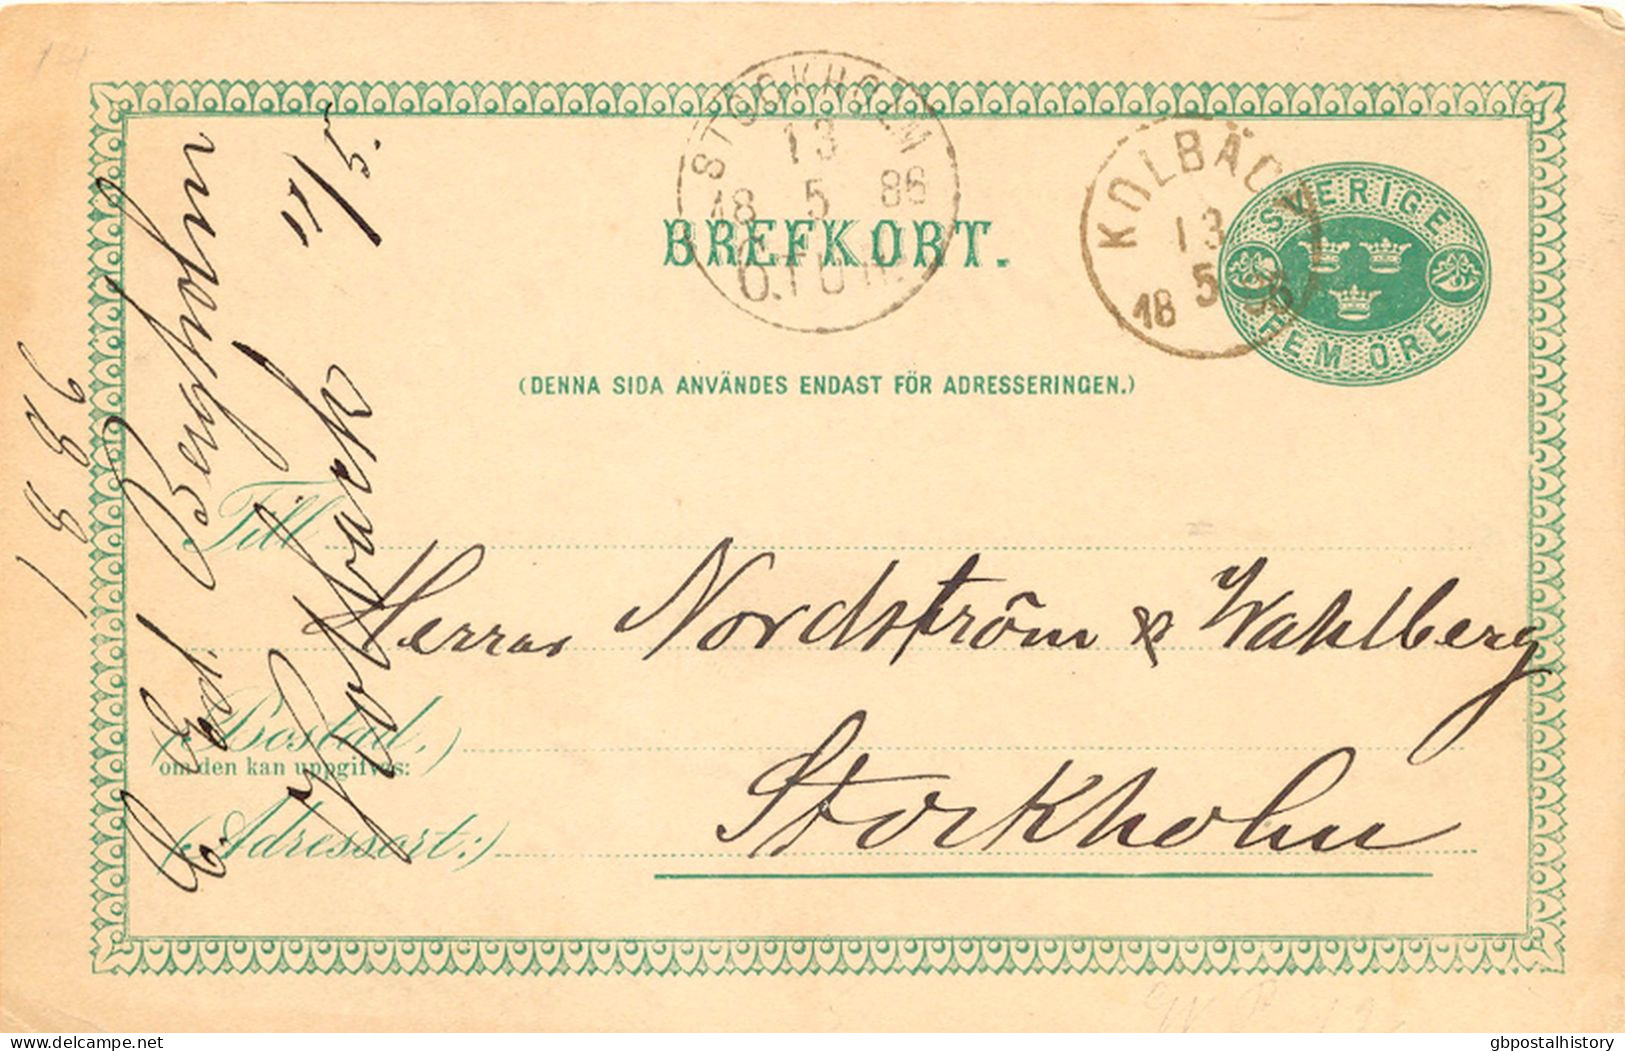 STOCKHOLM
13
18 5 86
Ö.TUR.
KOLBÄCK
13
18 5 86
SVERIGE
FEM ÖRE
BREFKORT.
(DENNA SIDA ANVÄNDES ENDAST FÖR ADRESSERINGEN.)
Till
Herrar Nordström & Wahlberg
(Bostad,)
om den kan uppgifvas:
(Adressort:)
Stockholm
Bergholm
Kolbäck
1886
delcampe.net
gbpostalhistory